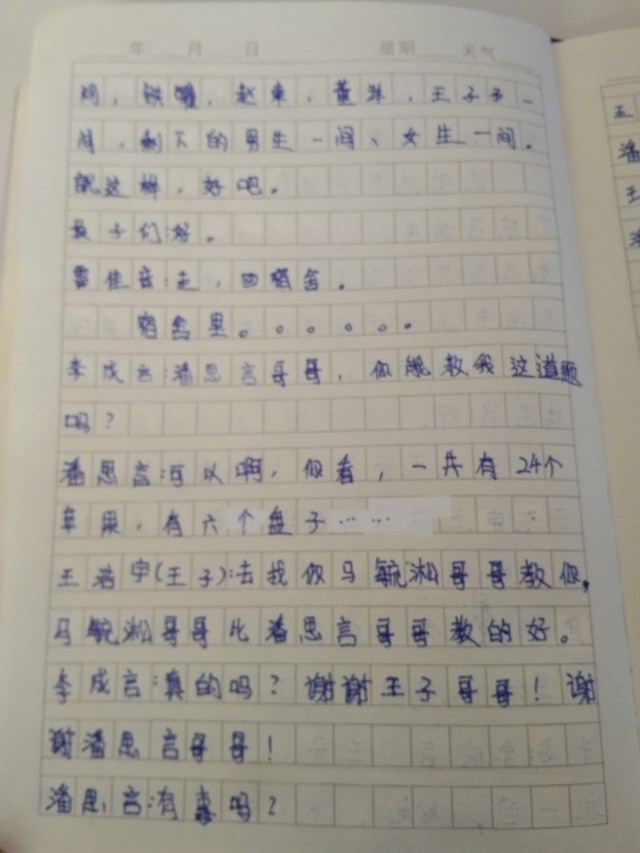 年 月 日 星期 天气
间，轶曈，赵東，董洋，王子予一
间，剩下的男生一间、女生一间。
就这样，好吧。
孩子们：好。
雷佳音：走，回宿舍。
宿舍里。。。。。。
李成言：潘思言哥哥，你能教我这道题
吗？
潘思言：可以啊，你看，一共有24个
苹果，有六个盘子……
王浩宇(王子)：去找你马毓淞哥哥教你，
马毓淞哥哥比潘思言哥哥教的好。
李成言：真的吗？谢谢王子哥哥！谢
谢潘思言哥哥！
潘思言：有毒吗？
王
潘
王